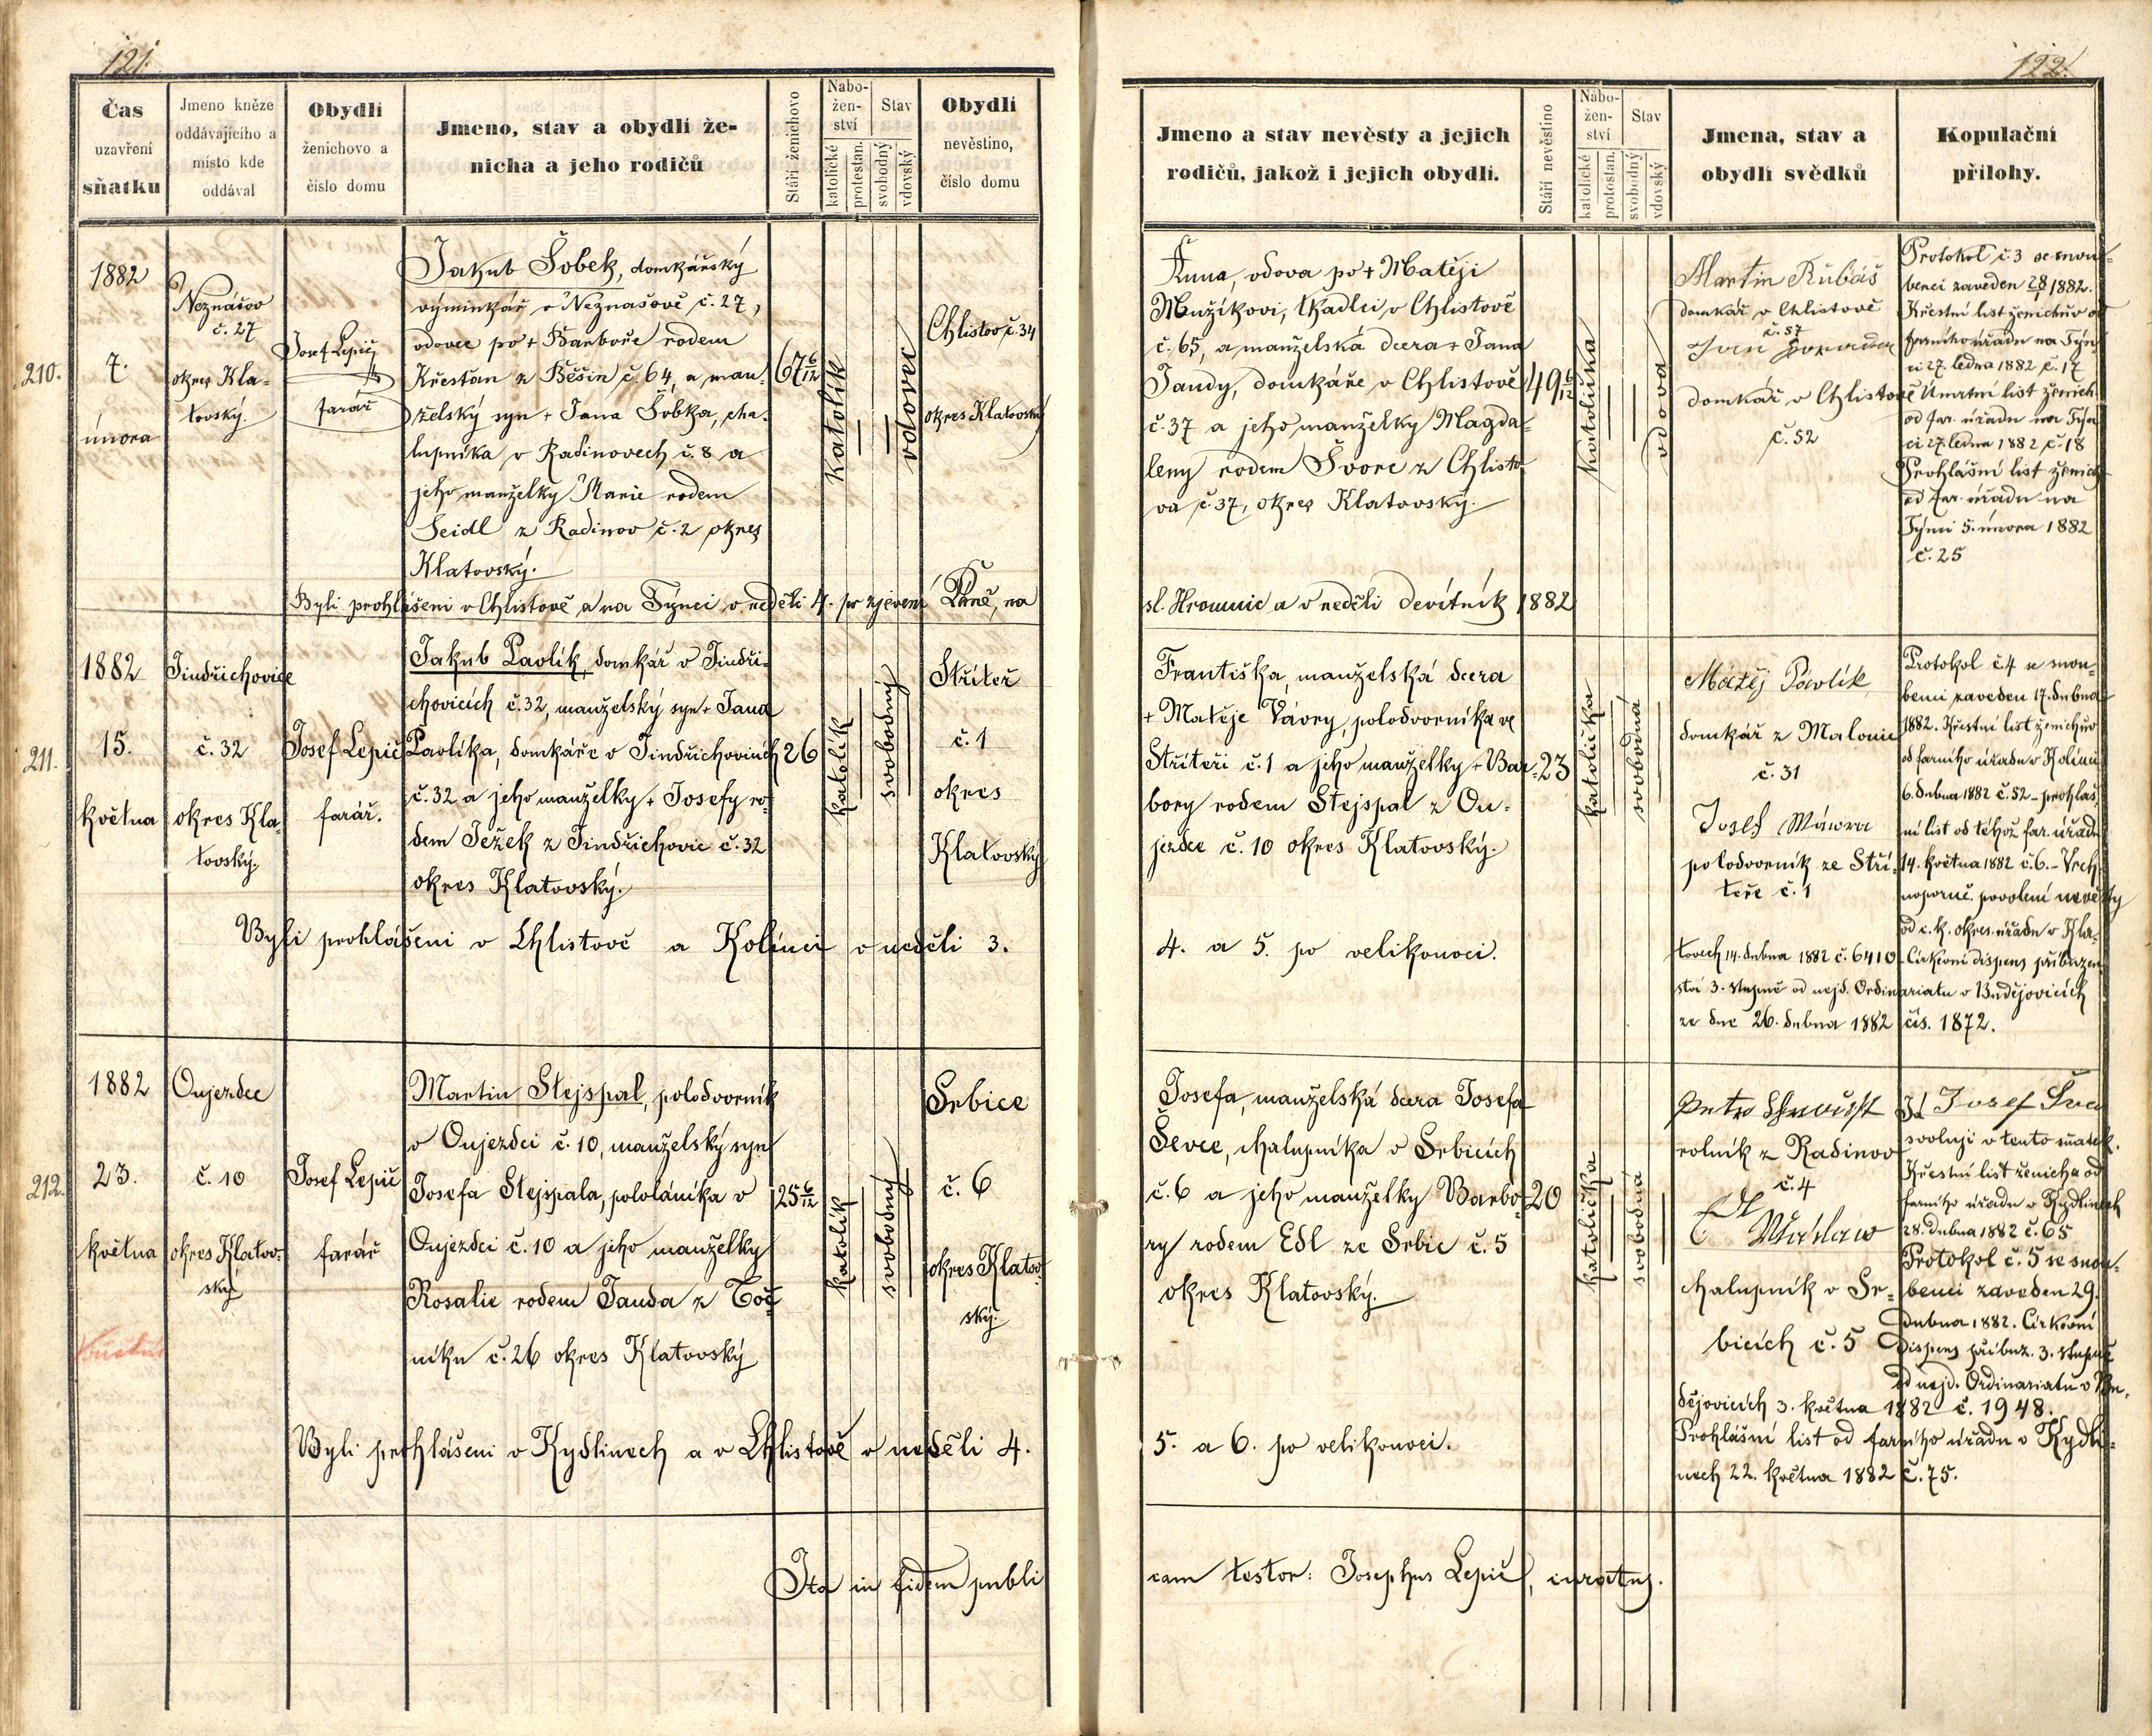 121.
Čas
uzavření
sňatku
Jmeno kněze
oddávajícího a
místo kde
oddával
Obydlí
ženichovo a
číslo domu
Jmeno, stav a obydlí že-
nicha a jeho rodičů
Stáří ženichovo
Nábo-
žen-
ství
katolické
protestan.
Stav
svobodný
vdovský
Obydlí
nevěstino,
číslo domu
210.
1882
7.
února
Neznášov
č. 27
okres Kla-
tovský.
Josef Lepič
farář
Jakub Šobek, domkářský
výminkář v Neznašově č. 27,
vdovec po + Barboře rodem
Křesťan z Běšin č. 64, a man-
želský syn + Jana Šobka, cha-
lupníka v Radinovech č. 8 a
jeho manželky Marie rodem
Seidl z Radinov č. 2 okres
Klatovský.
67 6/12
katolík
vdovec
Chlistov č. 34
okres Klatovský
Byli prohlášeni v Chlistově a na Týnci v neděli 4. po zjevení Páně, na
211.
1882
15.
května
Jindřichovice
č. 32
okres Kla-
tovský.
Josef Lepič
farář.
Jakub Pavlík, domkář v Jindři-
chovicích č. 32, manželský syn + Jana
Pavlíka, domkáře v Jindřichovicích
č. 32 a jeho manželky + Josefy ro-
dem Ježek z Jindřichovic č. 32
okres Klatovský.
26
katolík
svobodný
Střiteř
č. 1
okres
Klatovský
Byli prohlášeni v Chlistově a Kolinci v neděli 3.
212.
1882
23.
května
Oujezdec
č. 10
okres Klatov-
ský
Josef Lepič
farář
Martin Stejspal, polodvorník
v Oujezdci č. 10, manželský syn
Josefa Stejspala, pololáníka v
Oujezdci č. 10 a jeho manželky
Rosalie rodem Janda z Toč-
níku č. 26 okres Klatovský
25 6/12
katolík
svobodný
Srbice
č. 6
okres Klatov-
ský.
Byli prohlášeni v Kydlinech a v Chlistově v neděli 4.
Ita in fidem publi
122.
Jmeno a stav nevěsty a jejich
rodičů, jakož i jejich obydlí.
Stáří nevěstino
Nábo-
žen-
ství
katolické
protostan.
Stav
svobodný
vdovský
Jmena, stav a
obydlí svědků
Kopulační
přílohy.
Anna, vdova po + Matěji
Mužíkovi, tkadlci v Chlistově
č. 65, a manželská dcera + Jana
Jandy, domkáře v Chlistově
č. 37 a jeho manželky Magda-
leny rodem Švorc z Chlisto-
va č. 37, okres Klatovský.
49 6/12
katolička
vdova
Martin Rubáš
domkář v Chlistově
č. 57
Jan
domkář v Chlistově
č. 52
Protokol č. 3 se snou-
benci zaveden 28/1 1882.
Křestní list ženichův od
farního úřadu na Týn-
ci 27. ledna 1882 č. 17
Úmrtní list ženich.
od far. úřadu na Týn-
ci 27. ledna 1882 č. 18
Prohlášní list ženich
od far. úřadu na
Týnci 5. února 1882
č. 25
sl. Hromnic a v neděli devítník 1882
Františka, manželská dcera
+ Matěje Vávry, polodvorníka ve
Střiteři č. 1 a jeho manželky + Bar-
bory rodem Stejspal z Ou-
jezdce č. 10 okres Klatovský.
23
katolička
svobodná
Matěj Pavlík
domkář z Malonic
č. 31
Josef Wáwra
polodvorník ze Stři-
teře č. 1
Protokol č 4 se snou-
benci zaveden 17. dubna
1882. Křestní list ženichův
od farního úřadu v Kolinci
6. dubna 1882 č. 52 – prohláš-
ní list od téhož far. úřadu
14. května 1882 č. 6. – Vrch-
noporuč. povolení nevěsty
od c. k. okres. úřadu v Kla-
tovech 14. dubna 1882 č. 6410 – Církevní dispens příbuzen-
ství 3. stupně od nejd. Ordinariatu v Budějovicích
ze dne 26. dubna 1882 čís. 1872.
4. a 5. po velikonoci.
Josefa, manželská dcera Josefa
Ševce, chalupníka v Srbicích
č. 6 a jeho manželky Barbo-
ry rodem Edl ze Srbic č. 5
okres Klatovský.
20
katolička
svobodná
rolník z Radinov
č. 4
Edl
Wáclaw
chalupník v Sr-
bicích č. 5
Já Josef Švec
svoluji v tento sňatek.
Křestní list ženicha od
farního úřadu v Kydlinech
28. dubna 1882 č. 65
Protokol č. 5 se snou-
benci zaveden 29.
dubna 1882. Církevní
dispens příbuz. 3. stupně
od nejd. Ordinariatu v Bu-
dějovicích 3. května 1882 č. 1948.
Prohlášní list od farního úřadu v Kydli-
nech 22. května 1882 č. 75.
5. a 6. po velikonoci.
cam testor: Josephus Lepič, curatus.